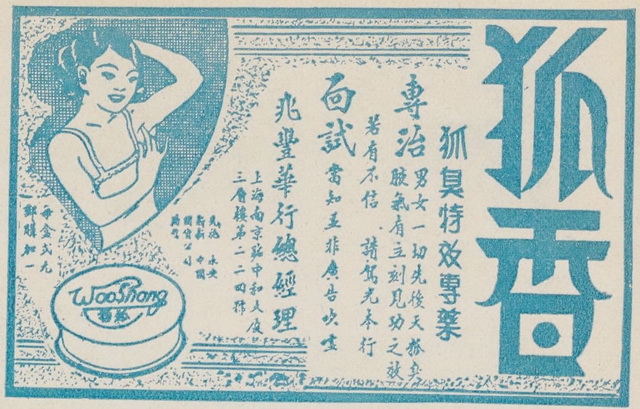 狐香
狐臭特效專藥
專治
男女一切先後天狐臭
腋氣有立刻見功之效
若有不信 請駕光本行
面試
當知並非廣告吹噓
兆豐華行總經理
上海南京路中和大廈
三層樓第二二四號
永安
新新 中國
國貨公司
每盒式元
郵購加一
WooShang